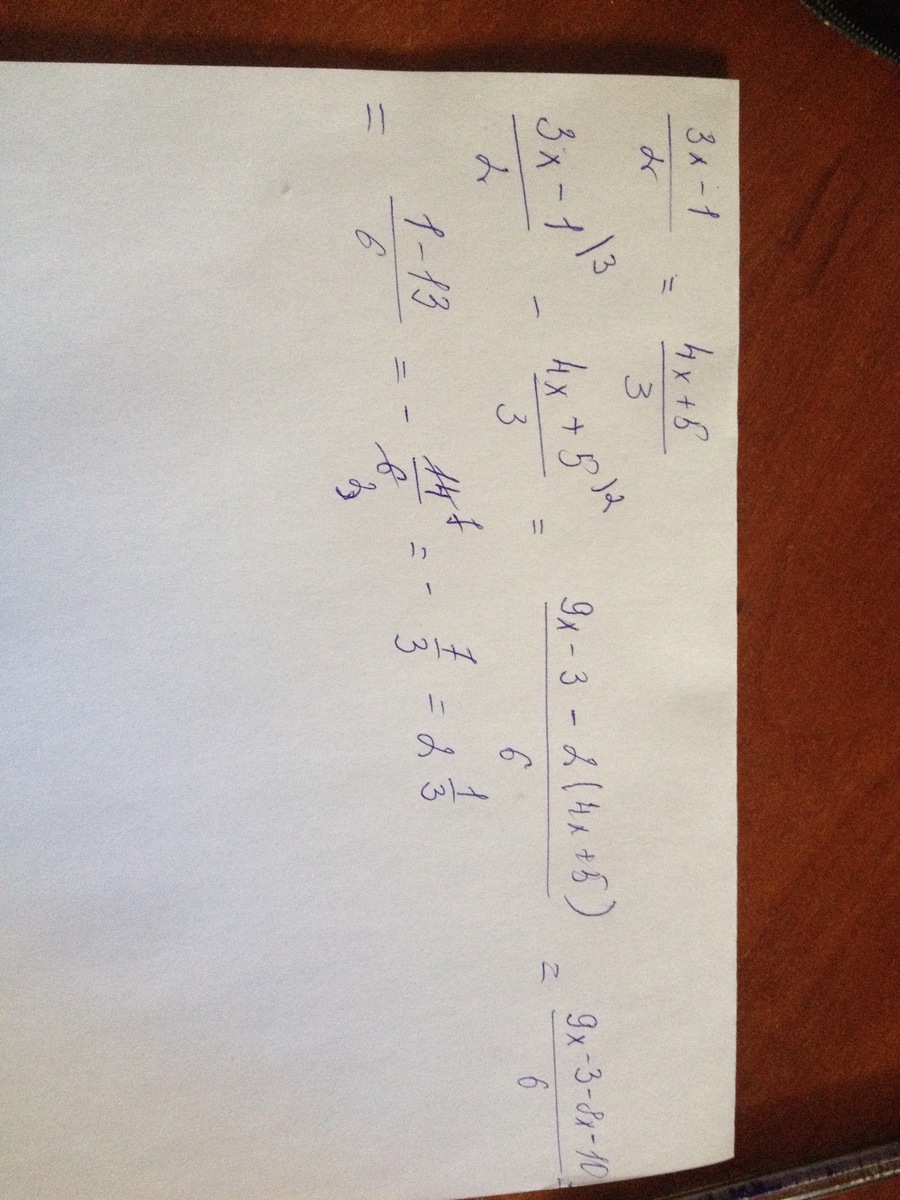 (3x-1)/2 = (4x+5)/3
(3x-1)/2 \3 - (4x+5)/3 \2 = (9x-3-2(4x+5))/6 = (9x-3-8x-10)/6 =
= (1-13)/6 = - = - 1/3 = 2 1/3